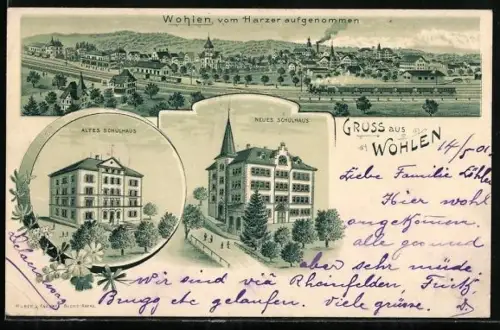 Wohlen, vom Harzer aufgenommen
ALTES SCHULHAUS
NEUES SCHULHAUS
GRUSS AUS
WOHLEN
14/5.01
Liebe Familie
Hier wohl
angekommen
alle
aber sehr müde.
Wir sind via Rheinfelden, Frick
Brugg etc gelaufen. Viele grüsse.